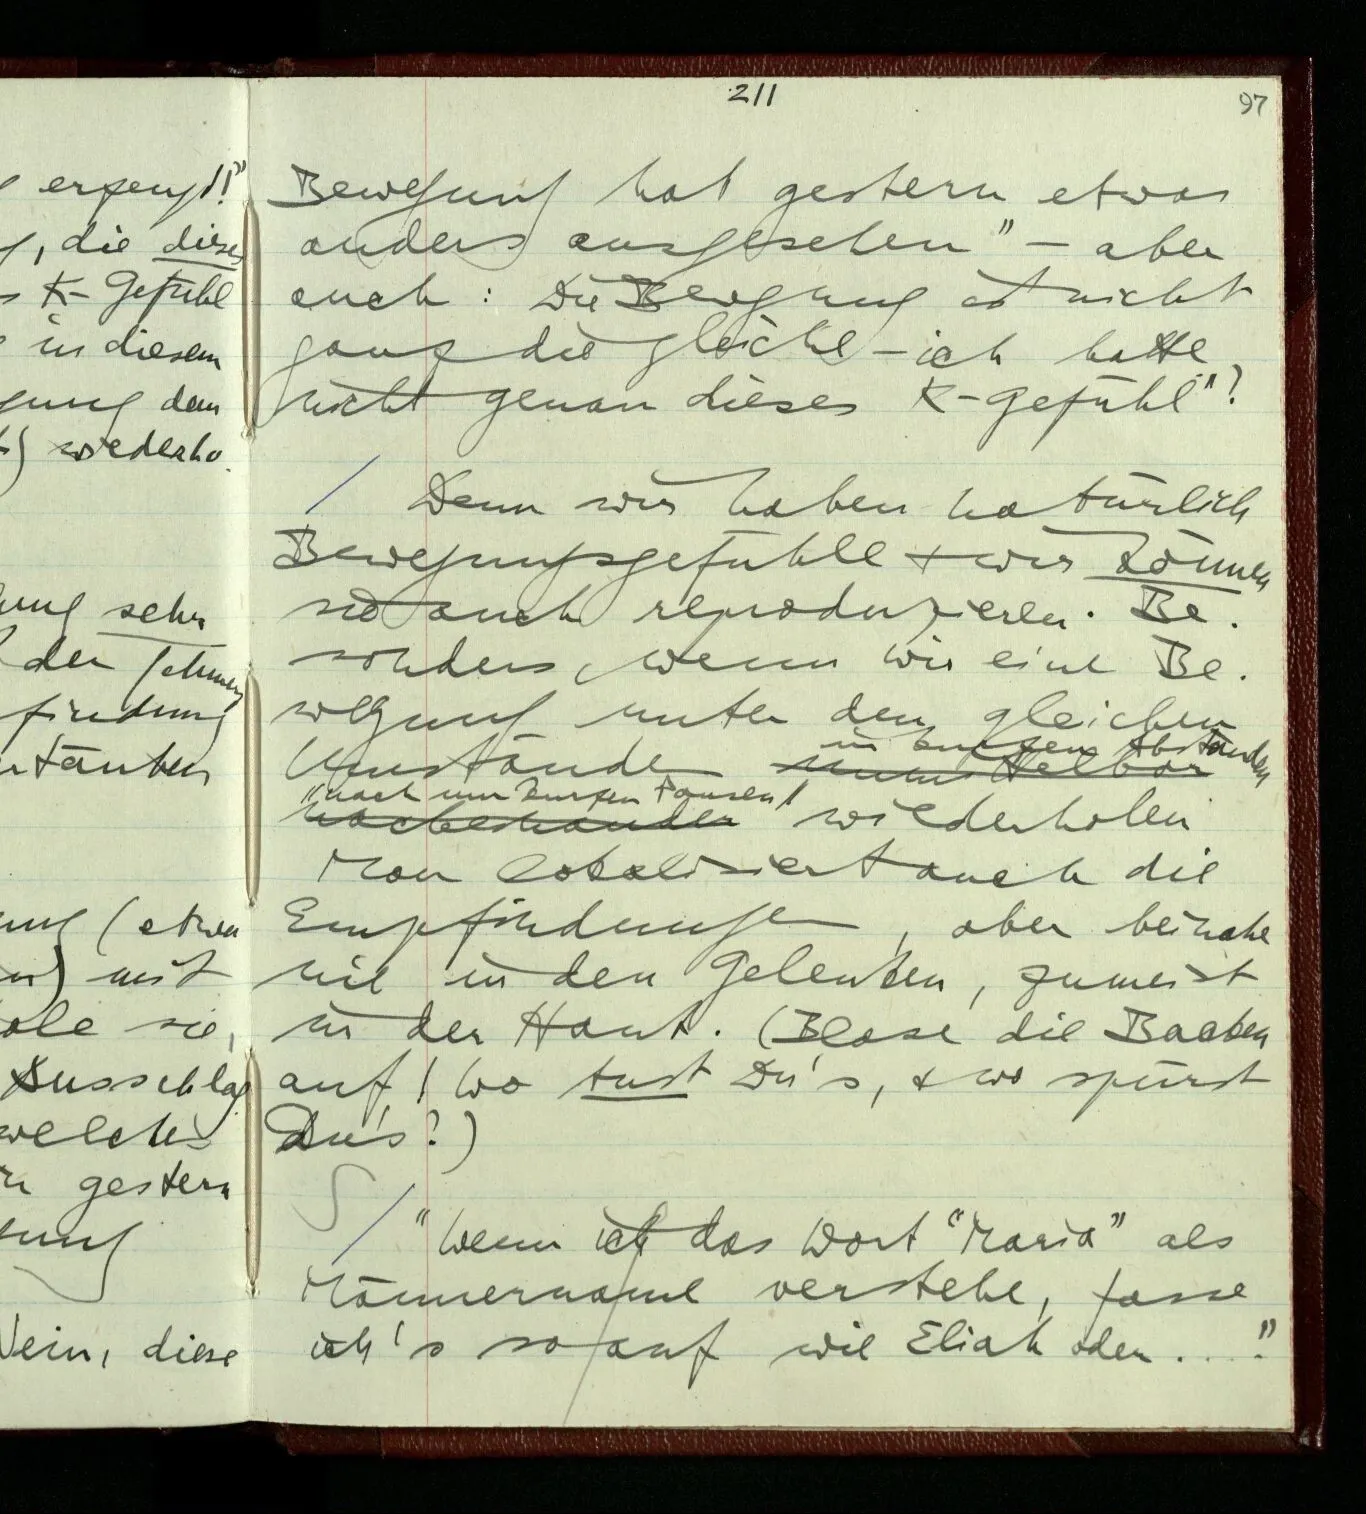 211
97
Bewegung hat gestern etwas
anders ausgesehen" – aber
auch: Die Bewegung ist nicht
ganz die gleiche – ich hatte
nicht genau dieses K-Gefühl"?
/ Denn wir haben natürlich
Bewegungsgefühle + wir können
sie auch reproduzieren. Be-
sonders, wenn wir eine Be-
wegung unter den gleichen
in kurzen Abständen
Umständen unmittelbar
"nach nur kurzen Pausen"
nacheinander wiederholen
Man lokalisiert auch die
Empfindungen, aber beinahe
nie in den Gelenken, zumeist
in der Haut. (Blase die Backen
auf! Wo tust Du's, + wo spürst
Du's?)
S / "Wenn ich das Wort "Maria" als
Männername verstehe, fasse
ich's so auf wie Eliah oder...."
erzeugt!"
, die diese
K-Gefühl
in diesem
dem
wiederho
sehr
der Schmerz
(etwa
mit
sie,
Ausschlag
welche
gestern
Nein, diese